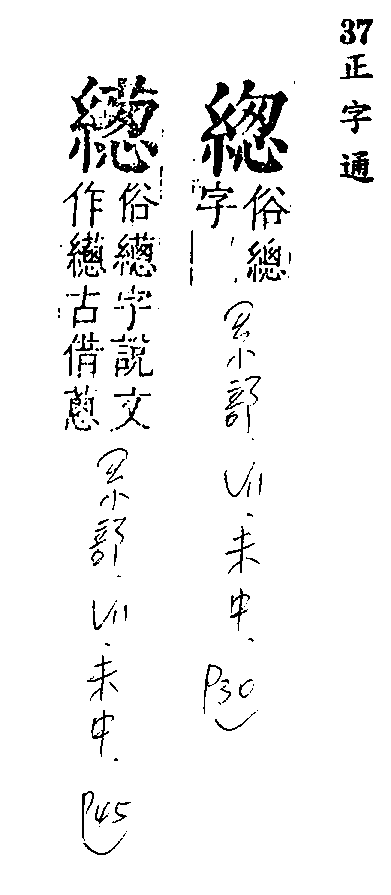 37 正字通
緫
俗總
字
糸部.VII.未中.P30
繱
俗繱字說文
作繱古借蔥
糸部.VII.未中.P45